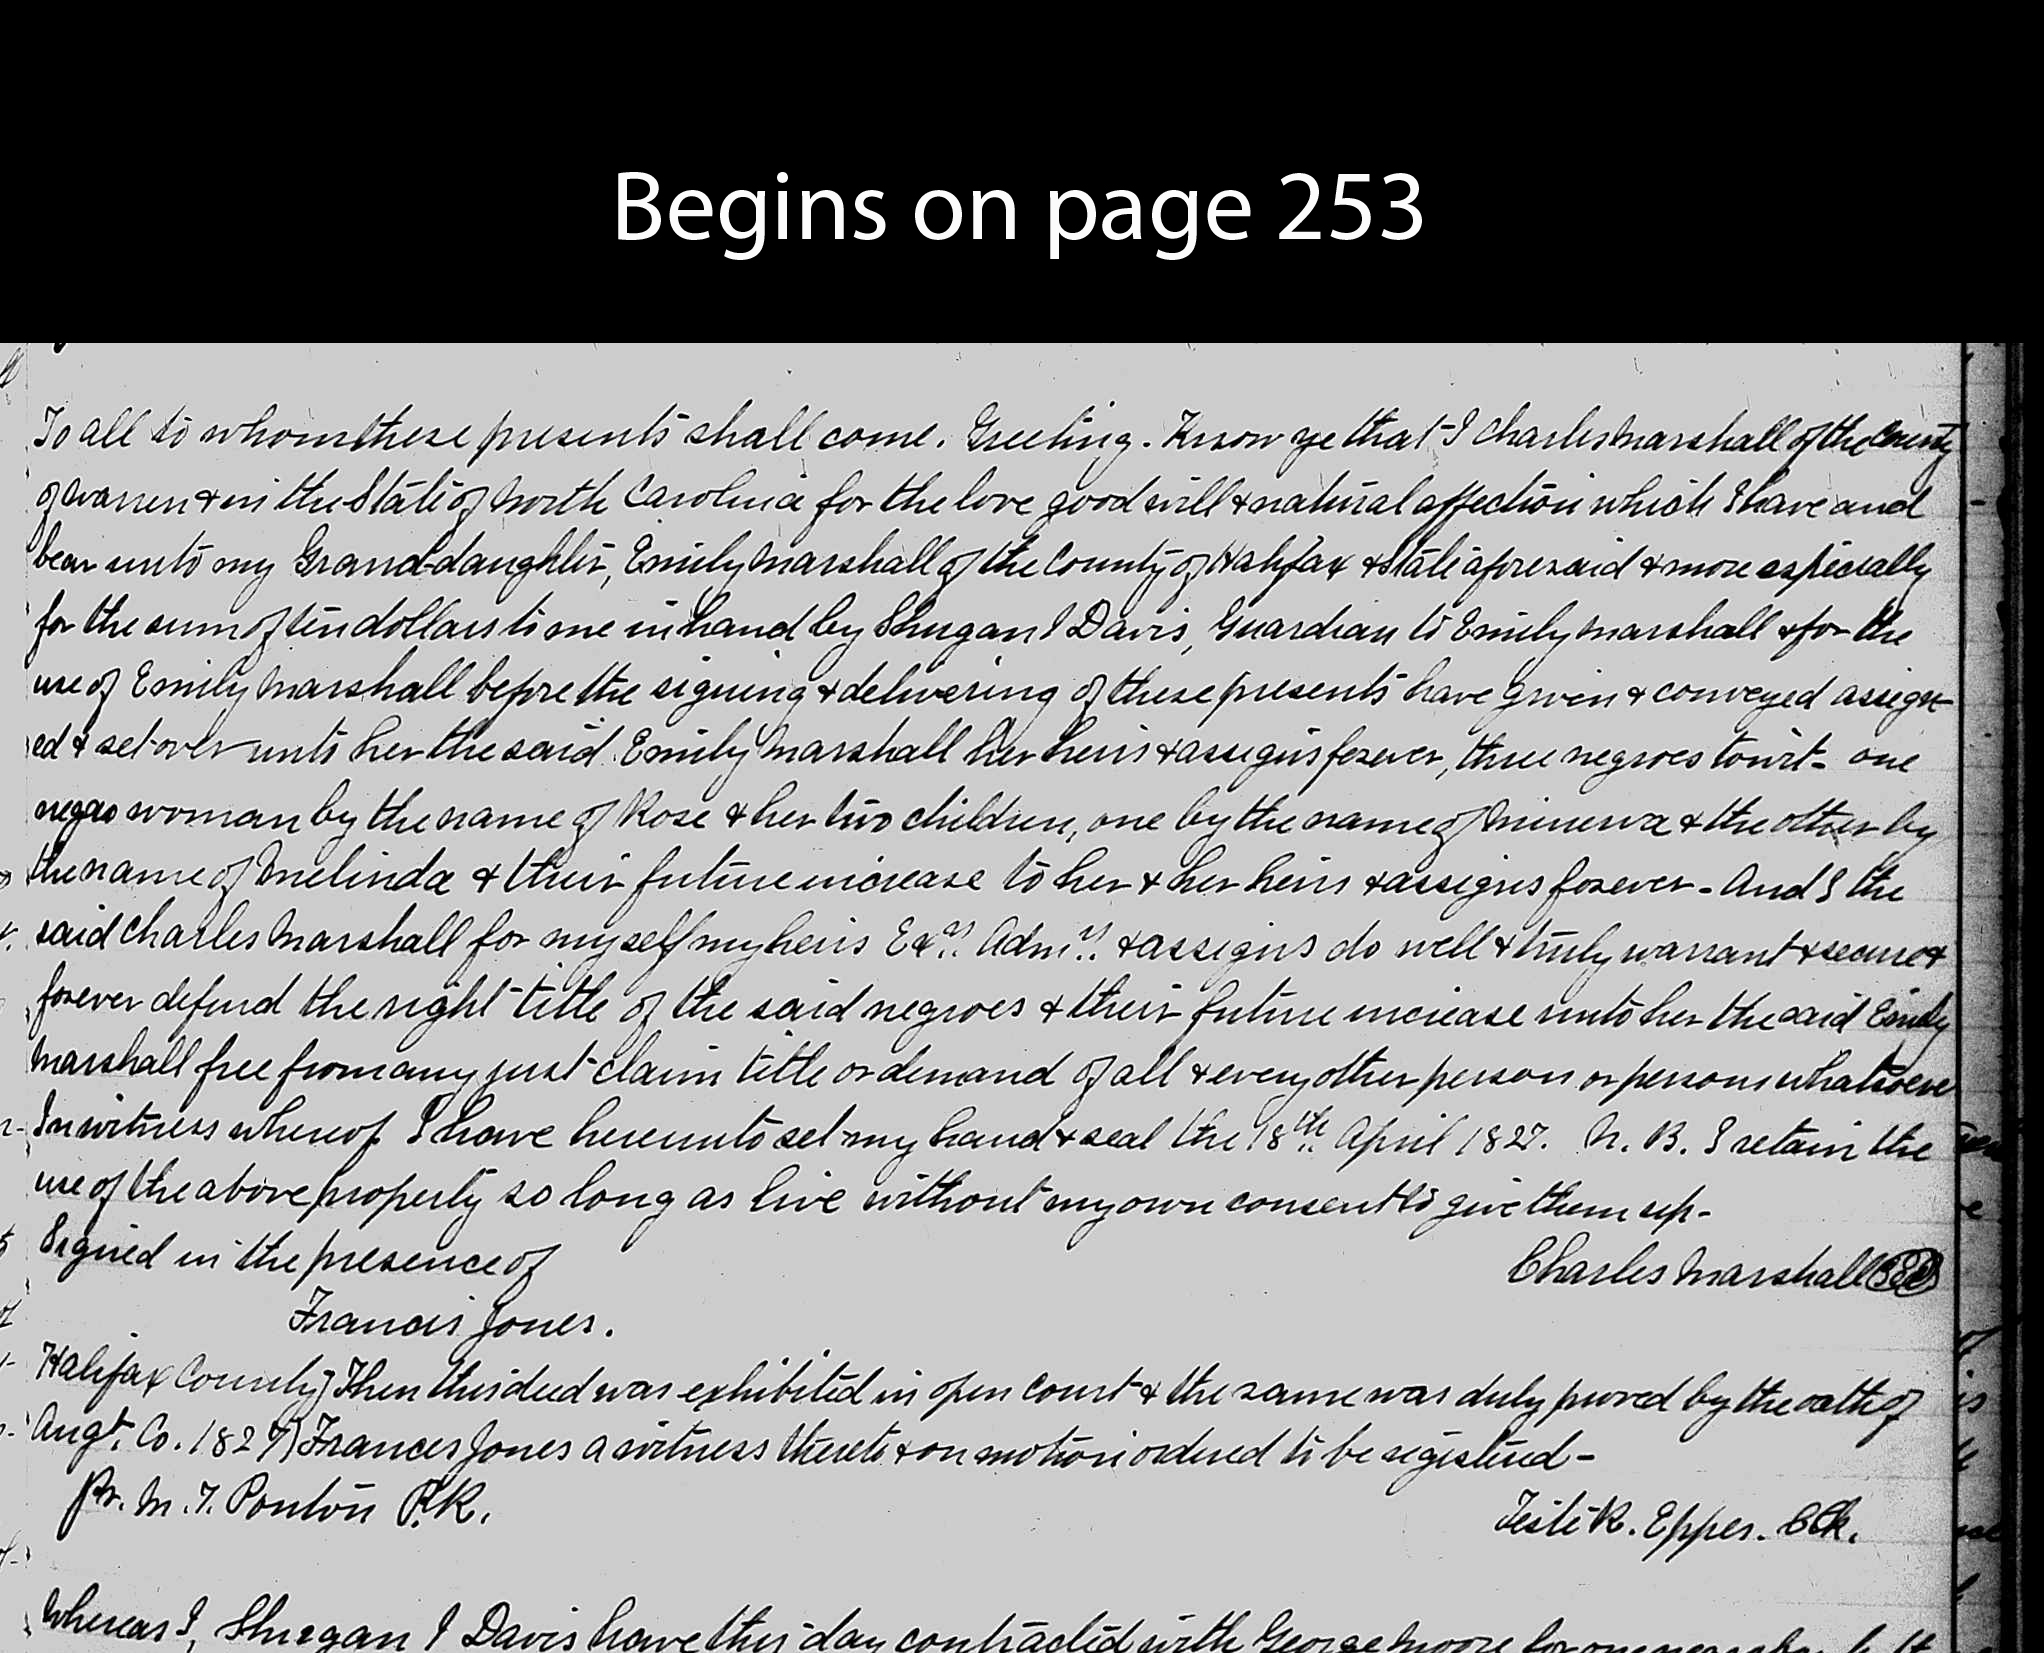 Begins on page 253
To all to whom these presents shall come. Greeting. Know ye that I Charles Marshall of the County
of Warren & in the State of North Carolina for the love good will & natural affection which I have and
bear unto my Grand-daughter, Emily Marshall of the County of Halifax & State aforesaid & more especially
for the sum of ten dollars to me in hand by Shugan I Davis, Guardian to Emily Marshall & for the
use of Emily Marshall before the signing & delivering of these presents have given & conveyed assign-
ed & set over unto her the said Emily Marshall her heirs & assigns forever, three negroes towit- one
negro woman by the name of Rose & her two children, one by the name of Minerva & the other by
the name of Melinda & their future increase to her & her heirs & assigns forever- And I the
said Charles Marshall for myself my heirs Exrs. Admrs. & assigns do well & truly warrant & secure &
forever defend the right title of the said negroes & their future increase unto her the said Emily
Marshall free from any just claim title or demand of all & every other person or persons whatsoever
In witness whereof I have hereunto set my hand & seal the 18th. April 1827. N. B. I retain the
use of the above property so long as live without my own consent to give them up-
Signed in the presence of
Charles Marshall
Francis Jones.
Halifax County} Then this deed was exhibited in open Court & the same was duly proved by the oath of
Augt. Co. 1827} Frances Jones a witness thereto & on motion ordered to be registered-
Pr. M. T. Ponton P.R.
Teste R. Eppes. Clk.
Whereas I, Shugan I Davis have this day contracted with George Moore for one negro